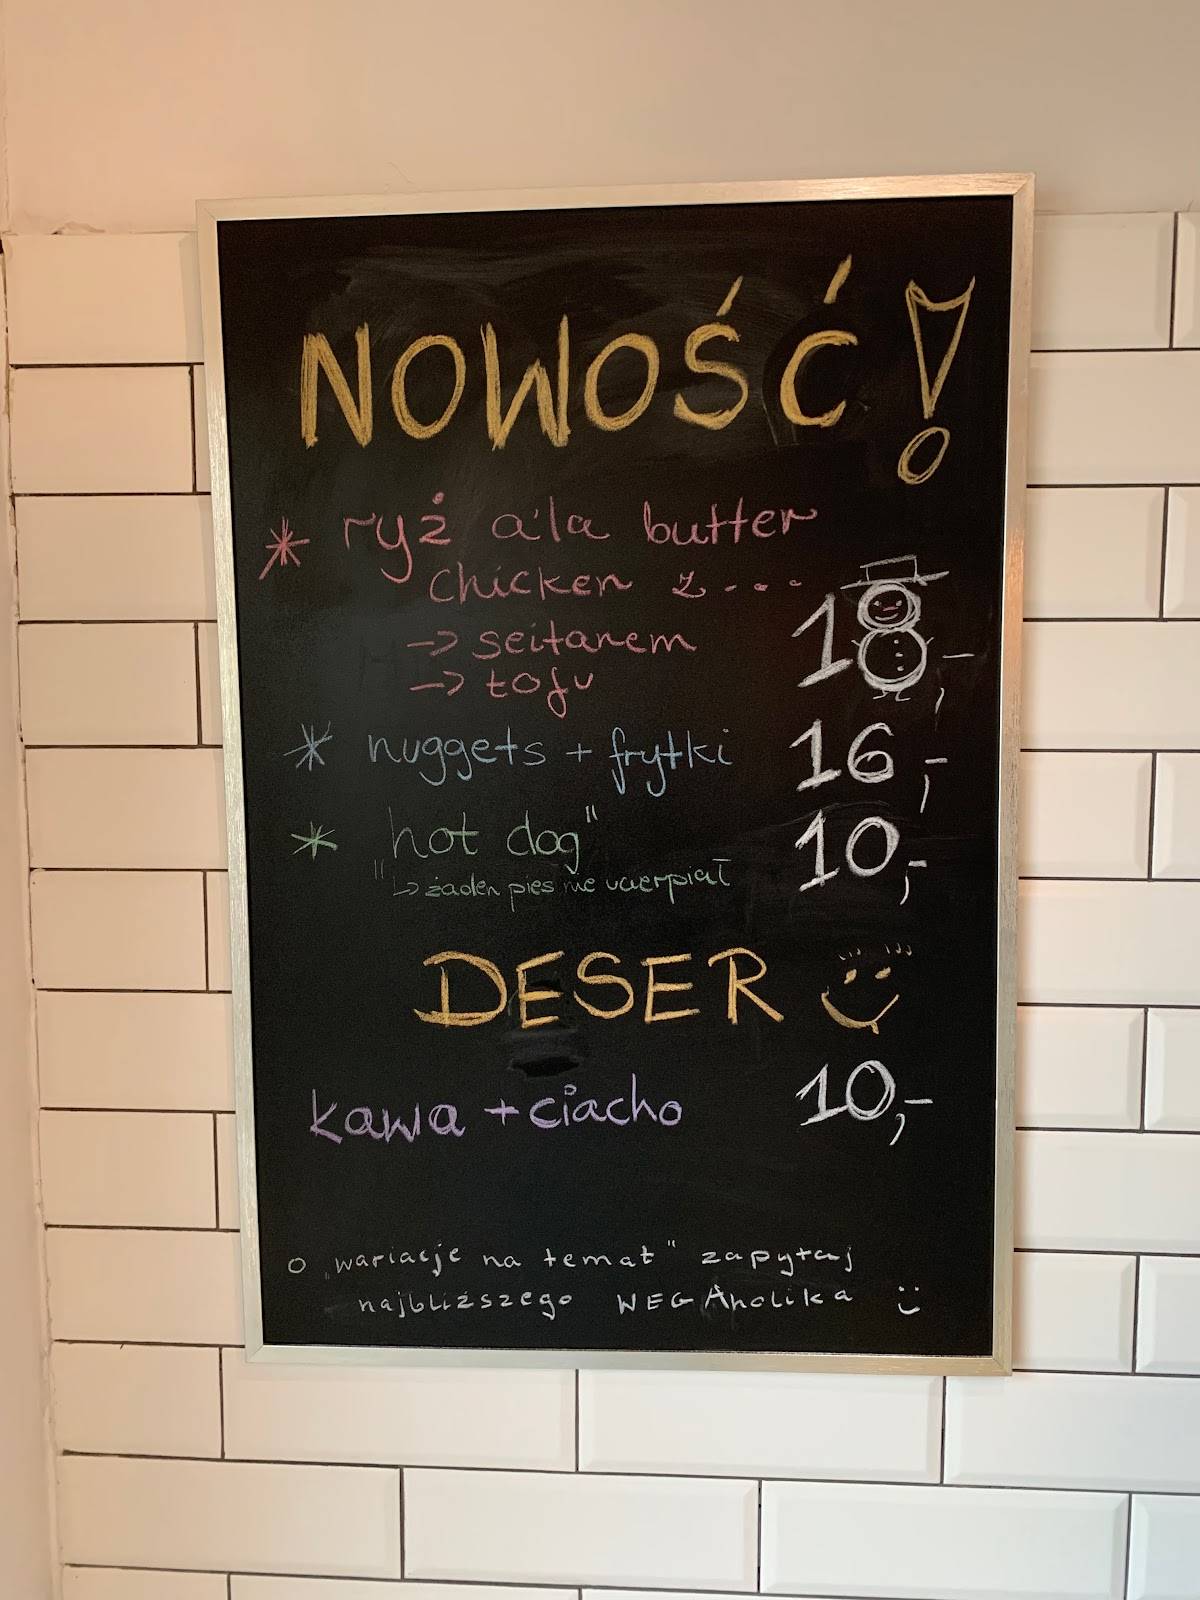 NOWOŚĆ!
* ryż a'la butter
chicken z....
-> seitanem
-> tofu 18,-
* nuggets + frytki 16,-
* "hot dog" 10,-
↳ żaden pies nie ucierpiał
DESER
kawa + ciacho 10,-
o „wariacje na temat" zapytaj
najbliższego WEGAholika :)